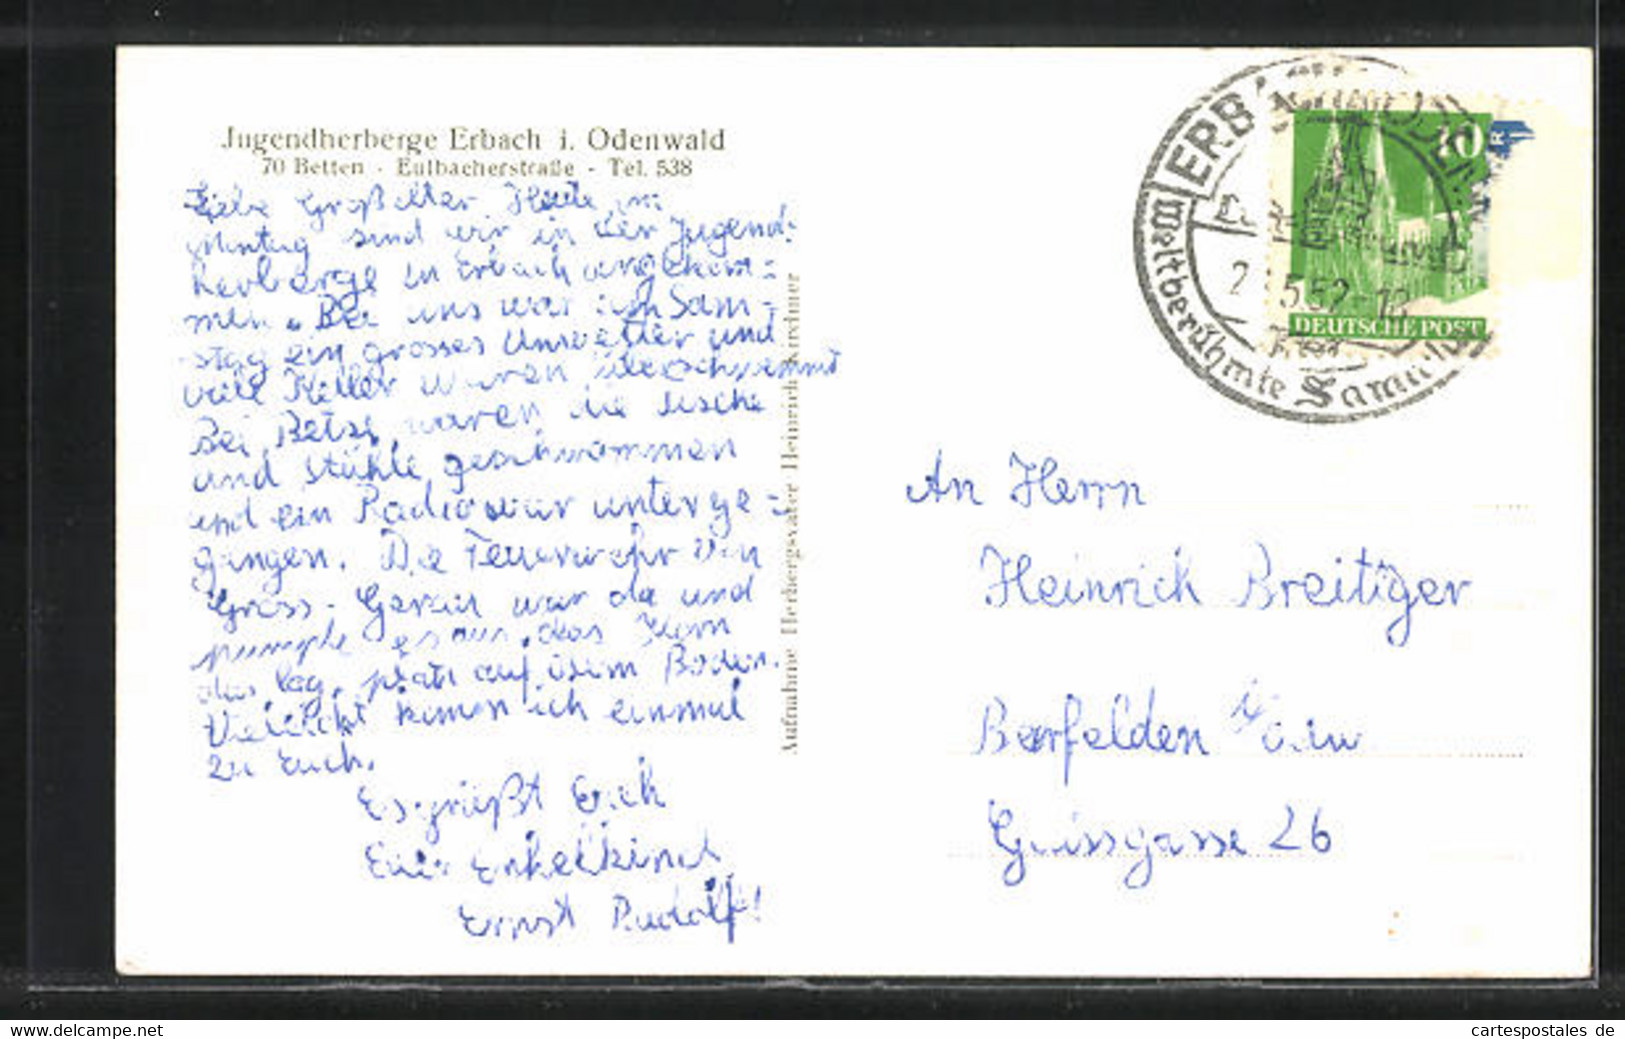 Jugendherberge Erbach i. Odenwald
70 Betten - Eulbacherstraße - Tel. 538
Liebe Großelter Heute am
Montag sind wir in der Jugend:
herberge in Erbach angekom=
men. Bei uns war am Sam=
stag ein grosses Unwetter und
viele Keller wuren überschwemmt
Bei Betz waren die Tische
und Stühle geschwommen
und ein Radio war unterge=
gangen. Die Feuerwehr von
Gross-Gerau war da und
pumpte es aus, das Korn
das lag platt auf dem Boden.
Vieleicht komen ich einmal
zu Euch.
Es grüßt Euch
Euer Enkelkind
Ernst Rudolf!
Aufnahme Herbergsvater Heinrich Kirchner
ERBACH ODENW
Weltberühmte
2 .5.52-18
10
DEUTSCHE POST
An Herrn
Heinrich Breitiger
Beerfelden i/Odw
Gaissgasse 26
Mehr sehen: www.oldthing.de
cartespostales de